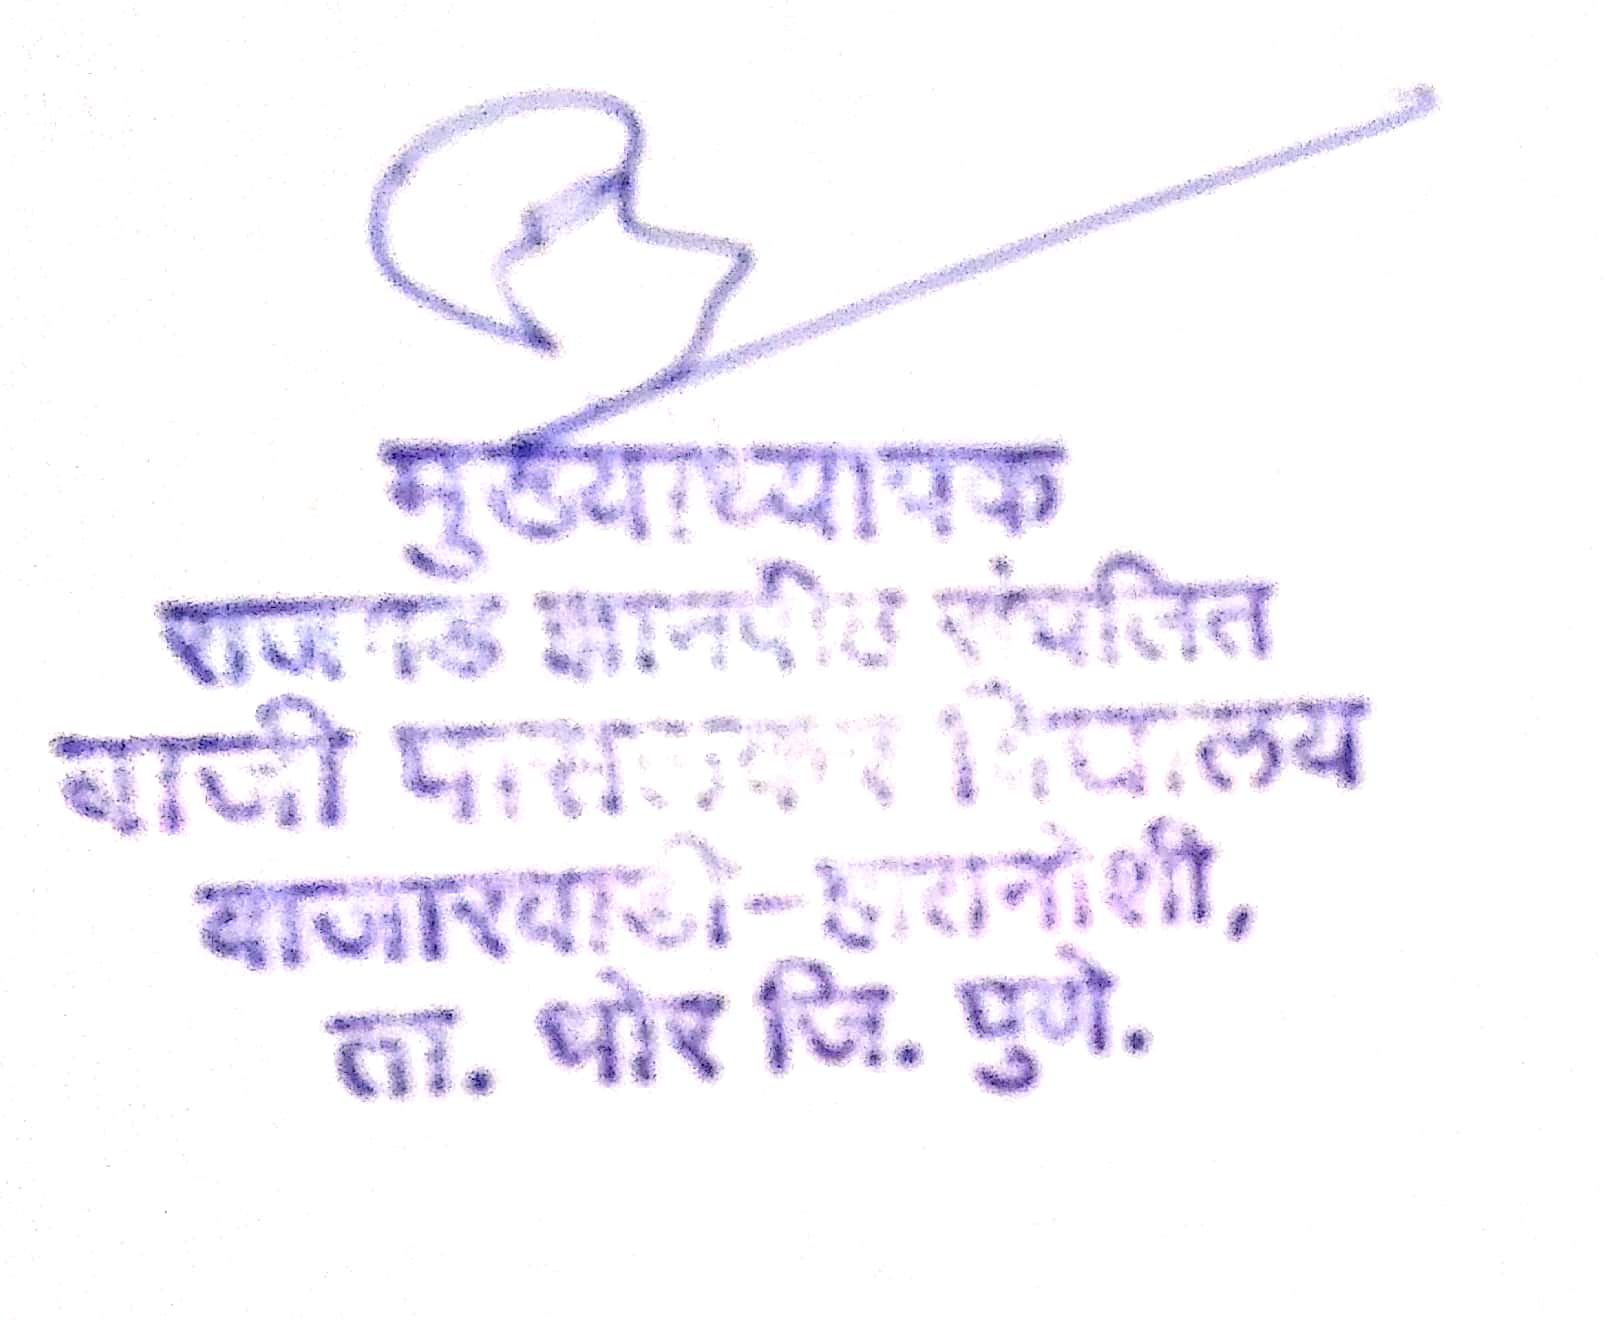 मुख्याध्यापक
राजगड ज्ञानपीठ संचलित
बाजी पासलकर विद्यालय
बाजारवाडी-हातनोशी,
ता. भोर जि. पुणे.